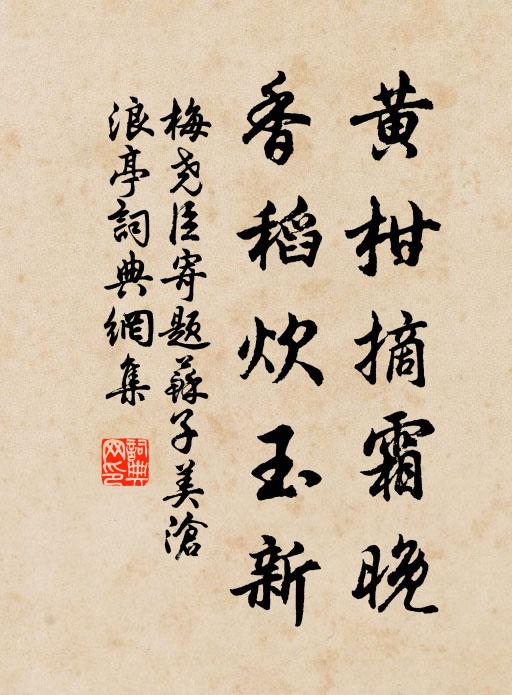 黄柑摘霜晚
香稻炊玉新
梅尧臣寄题蘇子美滄
浪亭詞典網集
詞典網印